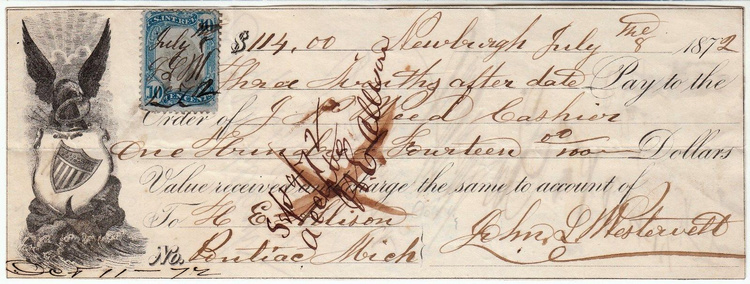 U.S. INTER. 10
July 8
J L W
1872
10 CENTS
$114.00 Newburgh July The 8 1872
Three Months after date Pay to the
Order of J Reed Cashier
One Hundred Fourteen 00/100 Dollars
Value received and charge the same to account of
To H E Allison
No. Pontiac Mich
John L Westervelt
Oct 11-72
accepted
H E Allison